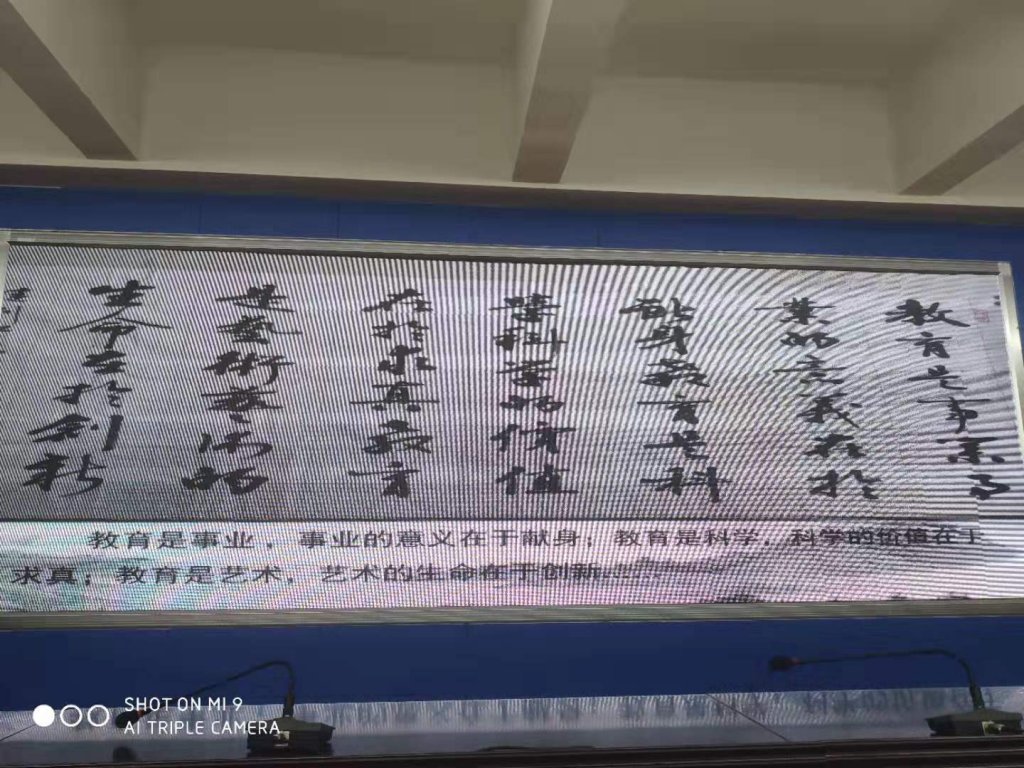 教育是事業事
業的意義在於
献身教育是科
學科學的價值
在於求真教育
是藝術藝術的
生命在於創新
教育是事业，事业的意义在于献身；教育是科学，科学的价值在于
求真；教育是艺术，艺术的生命在于创新……
SHOT ON MI 9
AI TRIPLE CAMERA